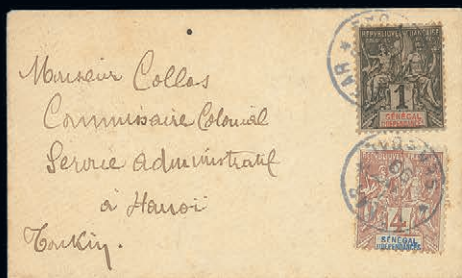 Monsieur Collas
Commissaire Colonial
Service administratif
à Hanoï
Tonkin.
RÉPUBLIQUE FRANÇAISE
1
SÉNÉGAL
ET DÉPENDANCES
RÉPUBLIQUE FRANÇAISE
4
SÉNÉGAL
ET DÉPENDANCES